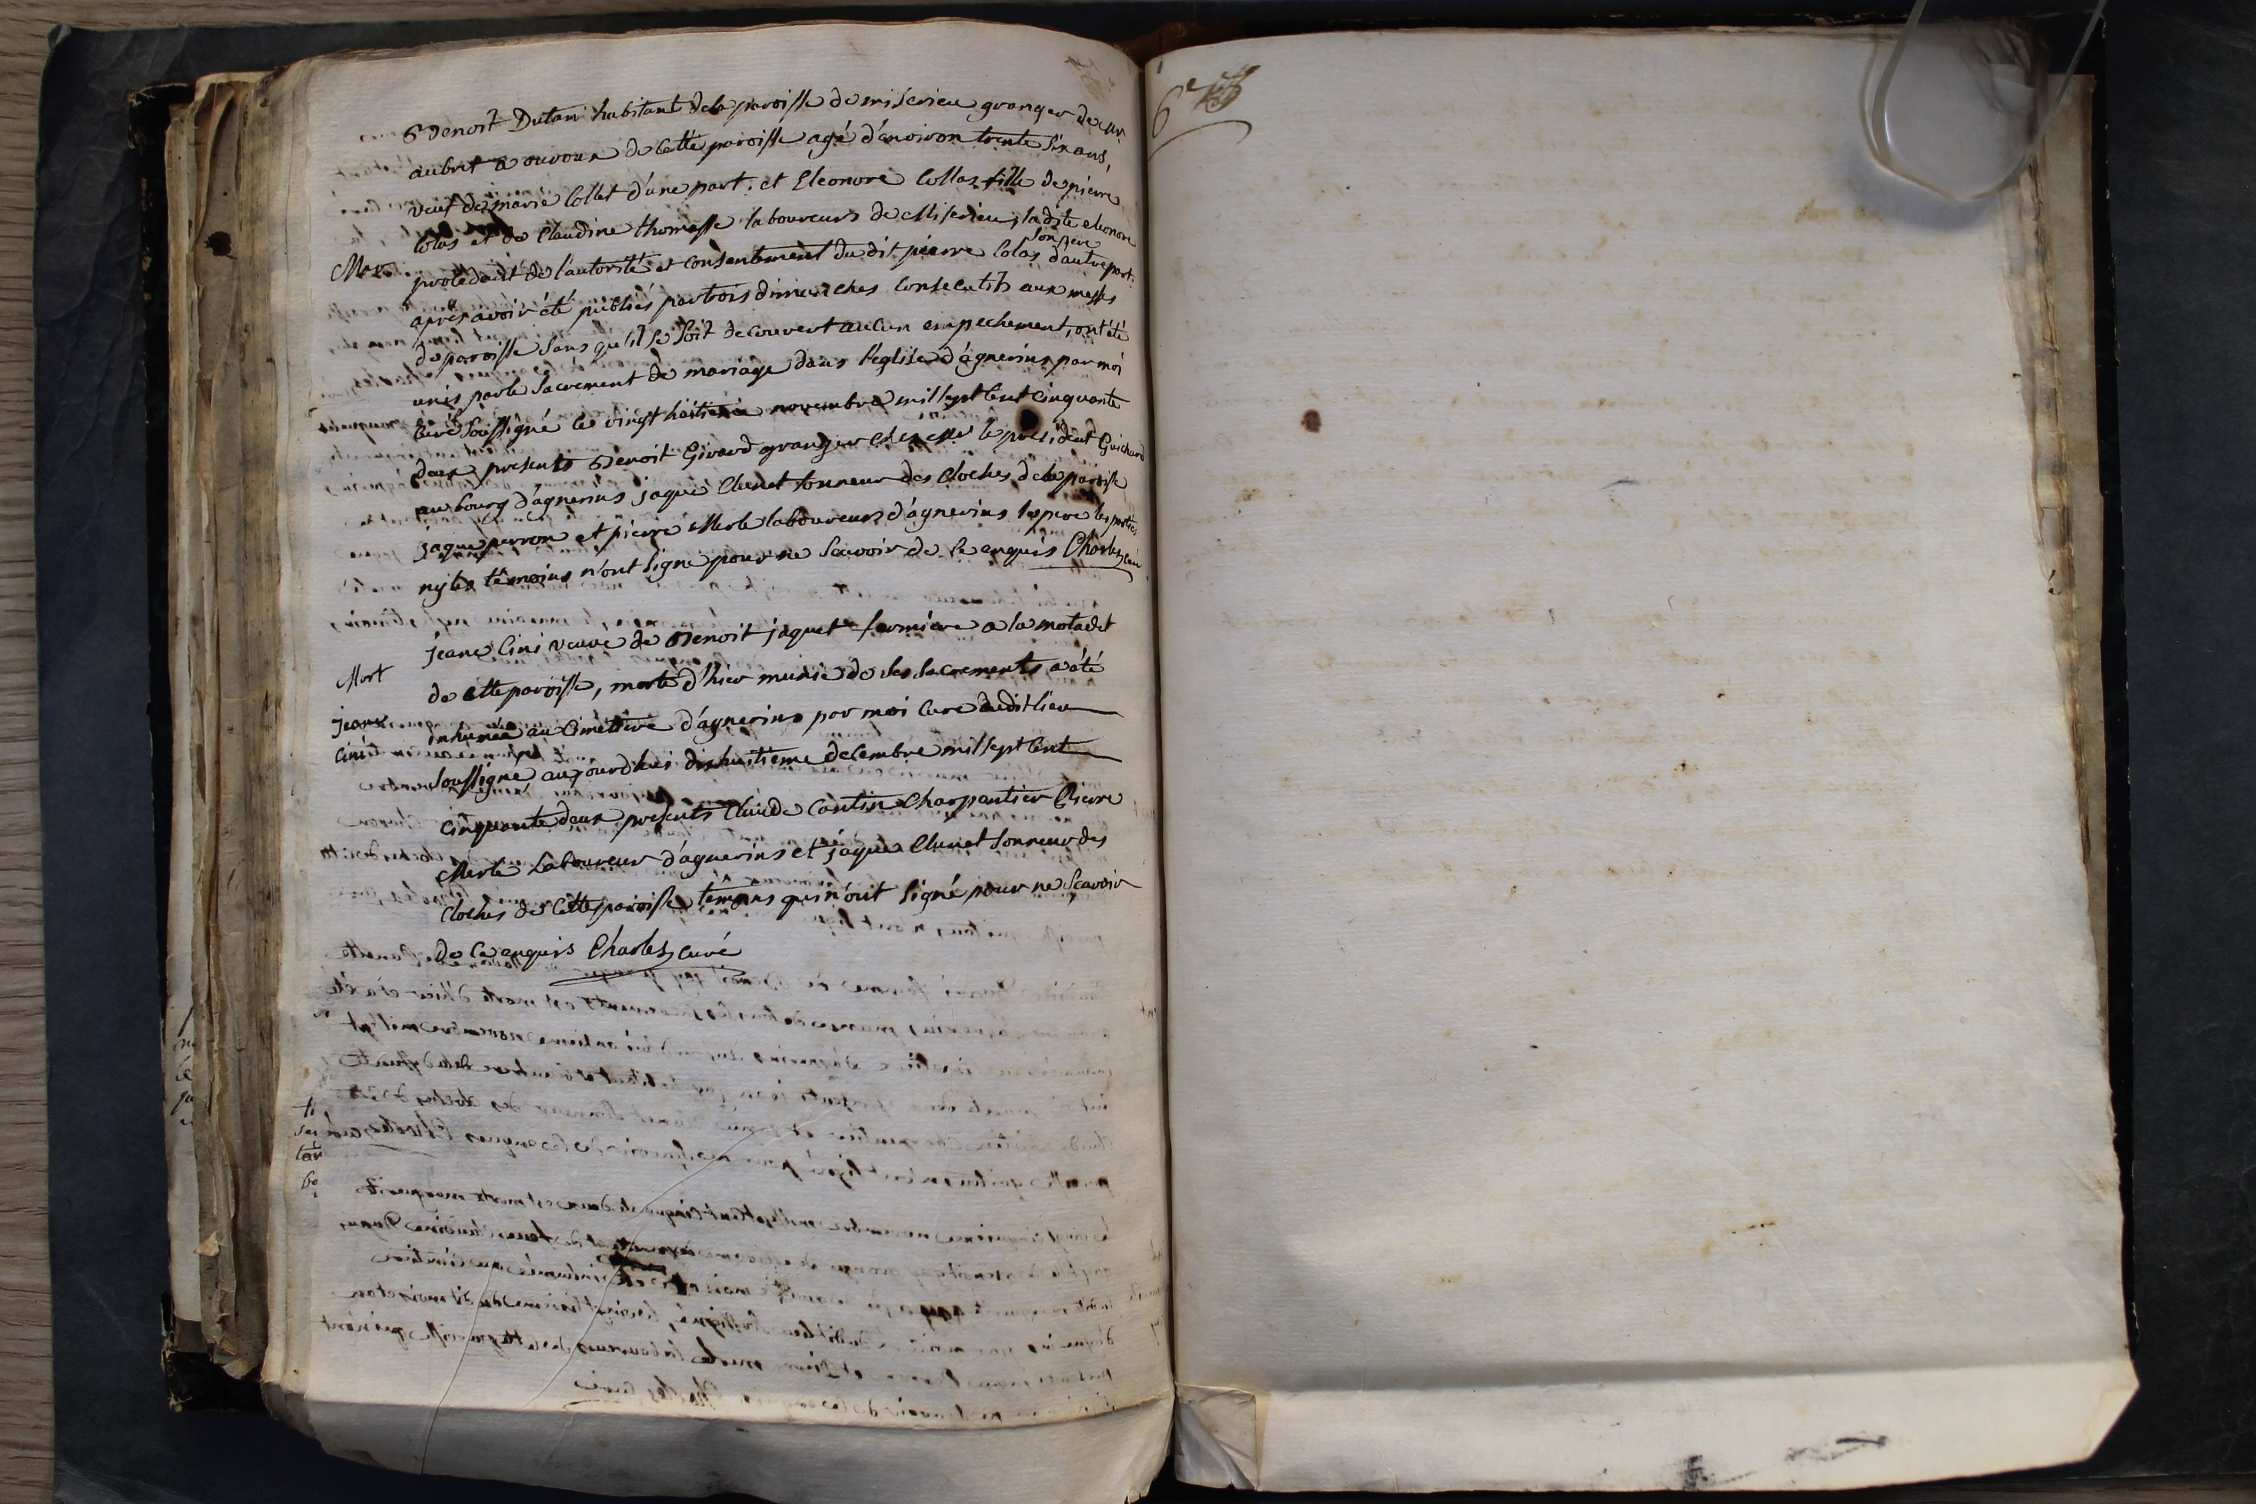 Benoit Dutan habitant dela paroisse de miserieu granger de Mr
aubret a ouvoux de cette paroisse agé d'environ trente six ans,
veuf de marie Collet d'une part. et Eleonore Collas fille de pierre
Colas et de Claudine thomasse laboureurs de Miserieu, ladite eleonore
son pere
procedant de l'autorité et consentement du dit pierre Colas d'autre part.
Mar.
après avoir été publiés par trois dimanches consecutifs aux messes
de paroisse sans qu'il se soit decouvert aucun empechement, ont été
unis par le sacrement de mariage dans l'eglise d'agnerins par moi
curé soussigné le vingt huitieme novembre mil sept cent cinquante
deux presents Benoit Girard granger chez Mr le president Guichard
au bourg d'agnerins jaque Clunet sonneur des cloches dela paroisse
jaque perron et pierre Merle laboureurs d'agnerins le pere les parties
ny les témoins n'ont signé pour ne scavoir de ce enquis Charles, curé
Mort
jeane
Cini
jeane Cini veuve de Benoit jaquet fermiere a la
de cette paroisse, morte d'hier munie de ses sacrements a été
inhumée au Cimettiere d'agnerins par moi Curé dudit lieu
soussigné aujourdhui dixhuitieme decembre mil sept cent
cinquante deux presents Claude Cantin Charpentier Pierre
Merle Laboureur d'agnerins et jaque Clunet sonneur des
cloches de cette paroisse témoins qui n'ont signé pour ne scavoir
de ce enquis Charles, curé
6e